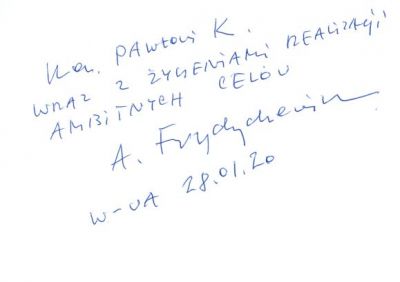 Kol. PAWŁOWI K.
WRAZ Z ŻYCZENIAMI REALIZACJI
AMBITNYCH CELÓW
A.
W-WA 28.01.20